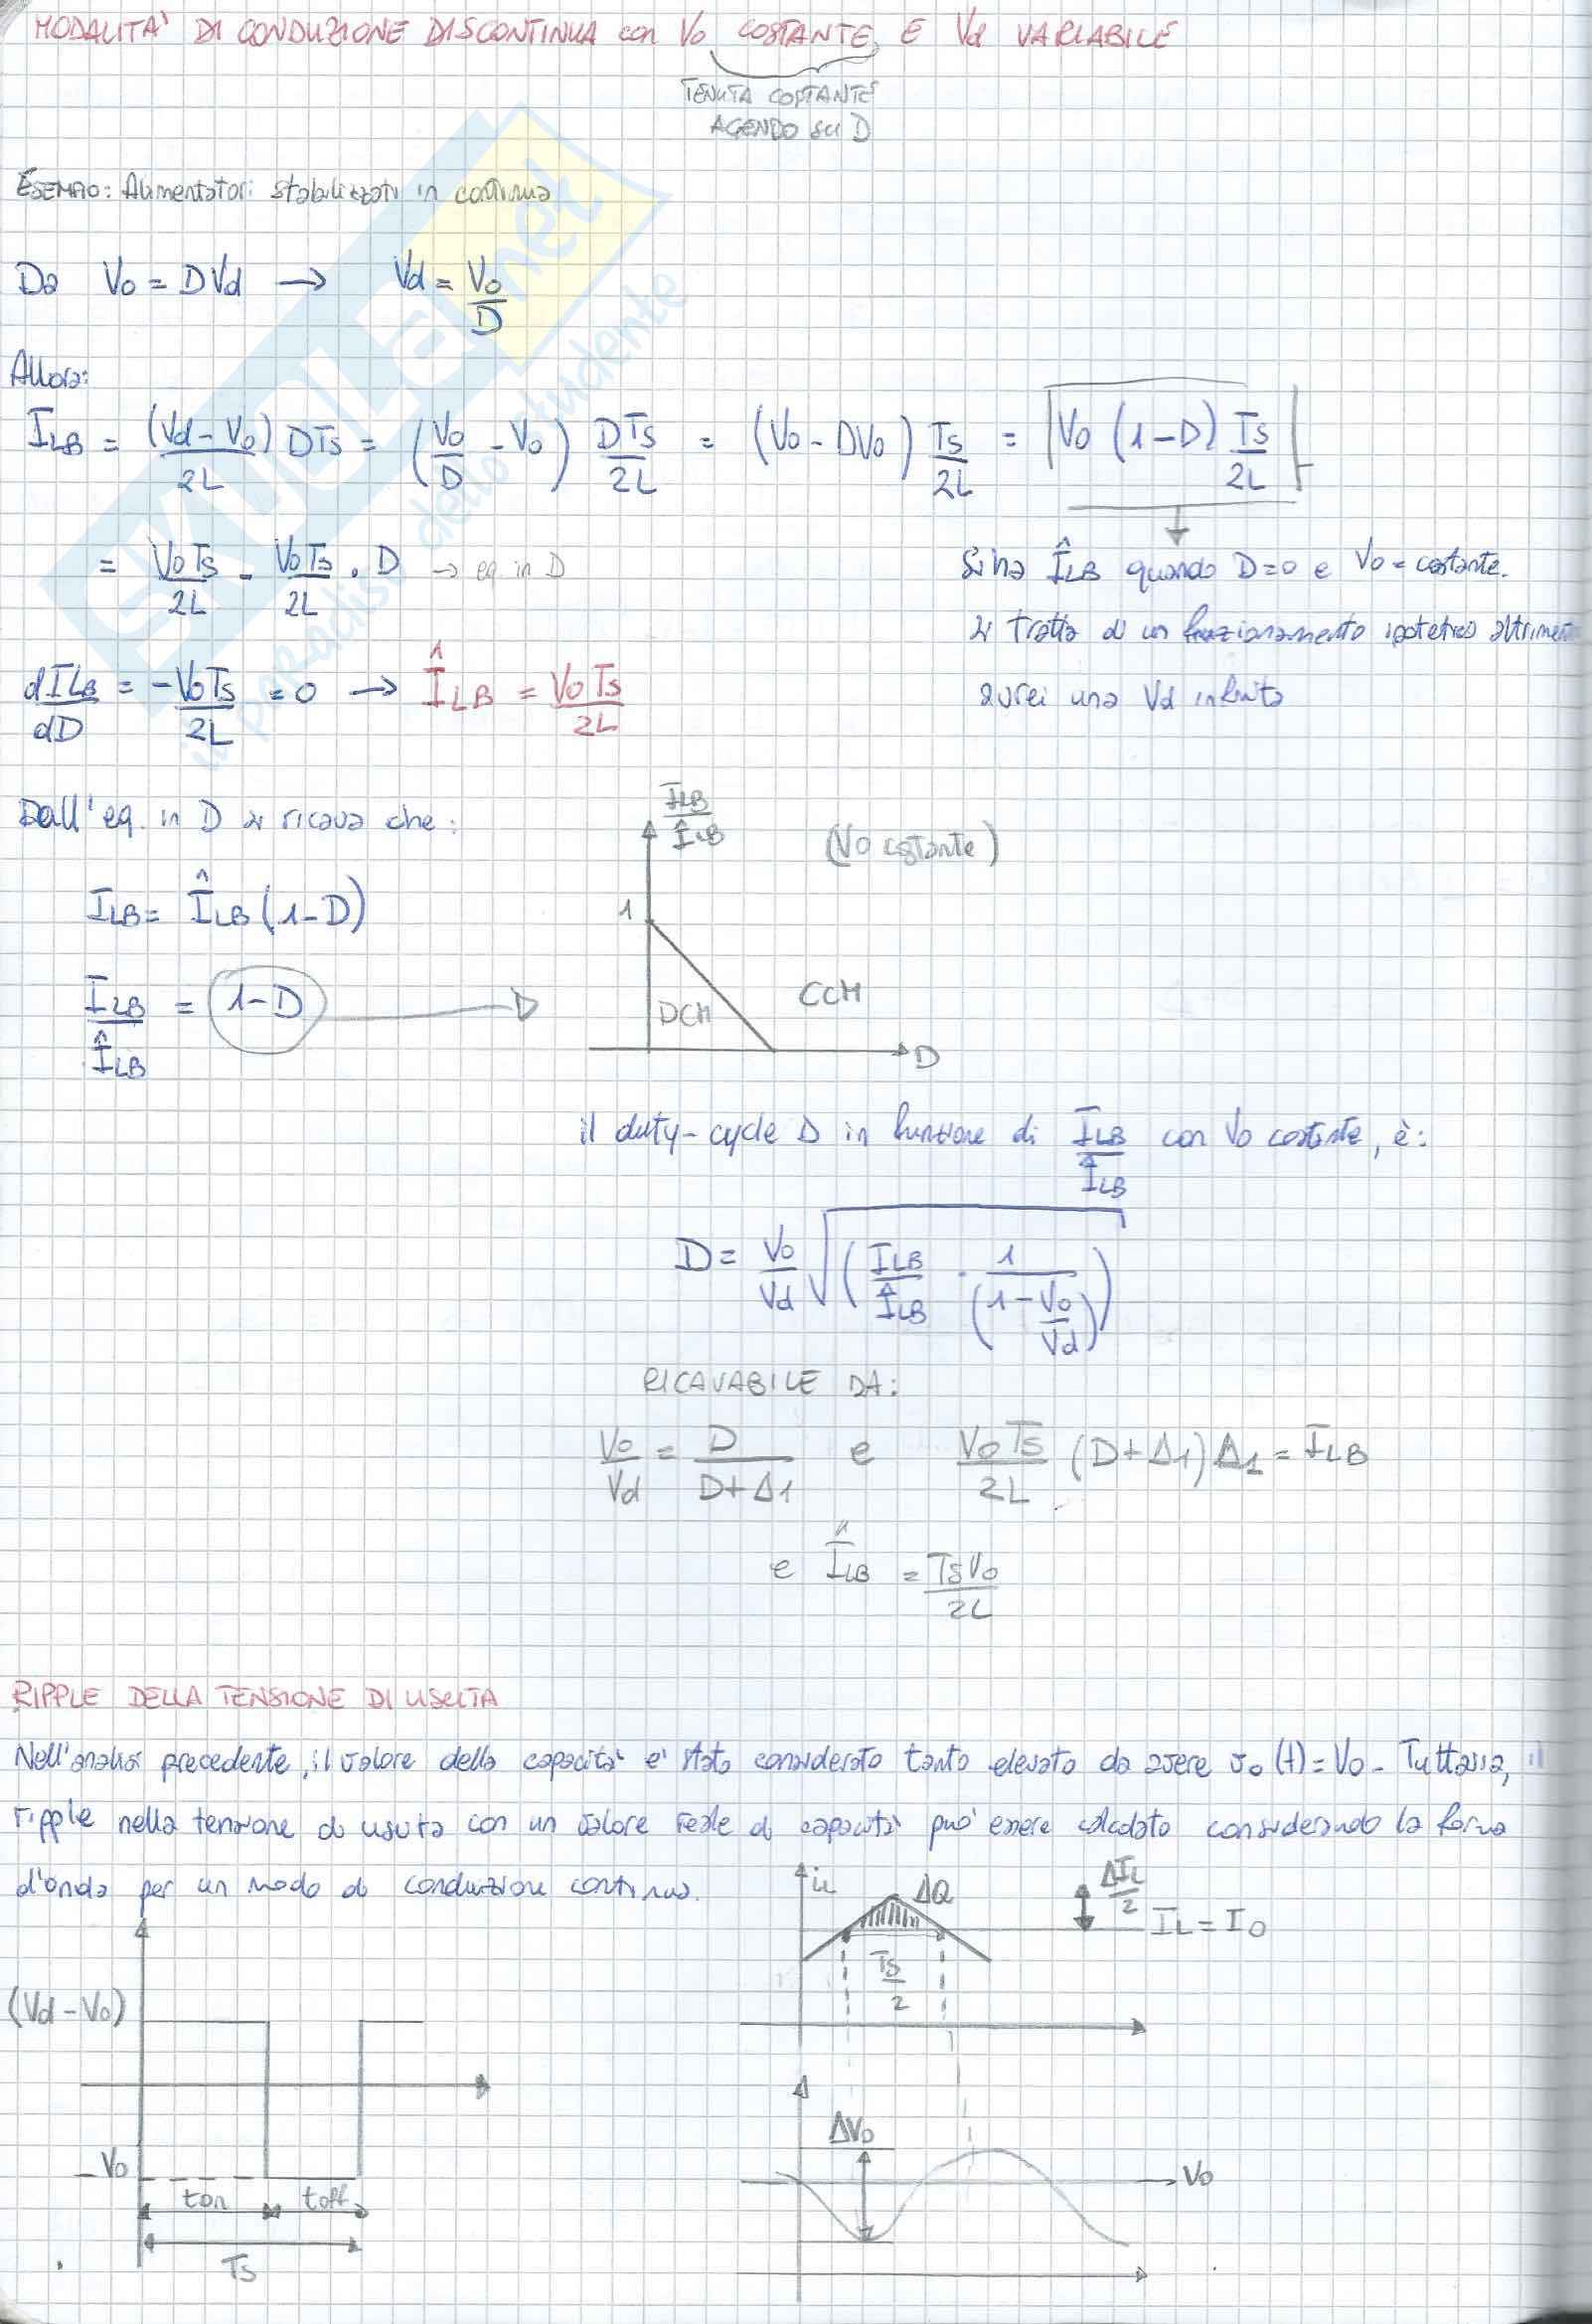 MODALITA' DI CONDUZIONE DISCONTINUA con Vo COSTANTE, E Vd VARIABILE
TENUTA COSTANTE
AGENDO SU D
ESEMPIO: Alimentatori stabilizzati in continua
Da Vo = DVd → Vd = Vo/D
Allora:
ILB = (Vd - Vo)/2L DTs = (Vo/D - Vo) DTs/2L = (Vo - DVo) Ts/2L = Vo (1-D) Ts/2L
= VoTs/2L - VoTs/2L · D → eq. in D
Si ha ÎLB quando D=0 e Vo = costante.
si tratta di un funzionamento ipotetico altrimenti
avrei una Vd infinita
dILB/dD = -VoTs/2L = 0 → ÎLB = VoTs/2L
Dall'eq. in D si ricava che:
ILB = ÎLB (1-D)
ILB/ÎLB = 1-D
ILB/ÎLB
(Vo costante)
1
DCM
CCM
D
il duty-cycle D in funzione di ILB/ÎLB con Vo costante, è:
D = Vo/Vd √(ILB/ÎLB · 1/(1 - Vo/Vd))
RICAVABILE DA:
Vo/Vd = D/(D+Δ1) e VoTs/2L (D+Δ1)Δ1 = ILB
e ÎLB = TsVo/2L
RIPPLE DELLA TENSIONE DI USCITA
Nell'analisi precedente, il valore della capacità e' stato considerato tanto elevato da avere vo(t) = Vo - Tuttavia, il
ripple nella tensione di uscita con un valore reale di capacità puo' essere calcolato considerando la forma
d'onda per un modo di conduzione continuo.
iL
ΔQ
ΔIL/2
IL = Io
Ts/2
(Vd - Vo)
-Vo
ton
toff
Ts
ΔVo
Vo
SKUOLA.net
il paradiso dello studente